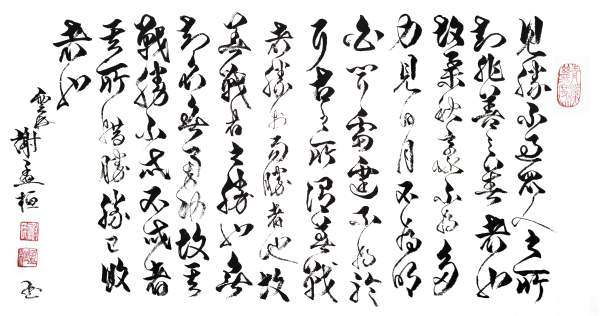 見勝不過眾人之所
知非善之善者也
故舉秋毫不為多
力見日月不為明
目聞雷霆不為聰
耳古之所謂善戰
者勝於易勝者也故
善戰者之勝也無
智名無勇功故其
戰勝不忒不忒者
其所措勝勝已敗
者也
謝孟桓